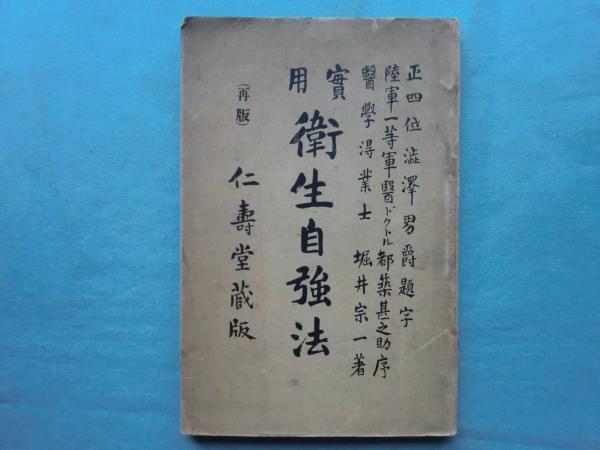 正四位澁澤男爵題字
陸軍一等軍醫ドクトル都築甚之助序
醫學得業士 堀井宗一著
實用
衛生自強法
(再版)
仁壽堂蔵版